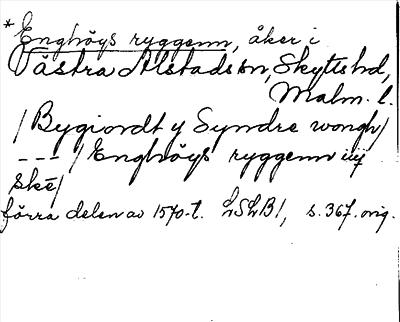 *Enghöys ryggenn, åker i
Västra Alstads sn, Skytts hd,
Malm. l.
/Bygiordt y Syndre wongh/
--- /Enghöys ryggenn iiij
skē/
förra delen av 1570-t. LSLB1, s. 367. orig.